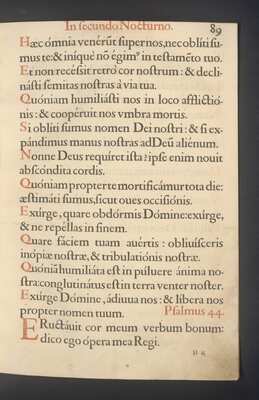 In secundo Nocturno. 89
Hæc ómnia venérũt super nos, nec oblíti su-
mus te: & iníque nõ égimꝰ in testamẽto tuo.
Et non recéssit retrò cor nostrum: & decli-
násti semitas nostras à via tua.
Quóniam humiliásti nos in loco afflictió-
nis: & coopéruit nos vmbra mortis.
Si oblíti sumus nomen Dei nostri: & si ex-
pándimus manus nostras ad Deũ aliénum.
Nonne Deus requíret ista? ipse enim nouit
abscóndita cordis.
Quóniam propter te mortificámur tota die:
æstimáti sumus, sicut oues occisiónis.
Exúrge, quare obdórmis Dómine: exúrge,
& ne repéllas in finem.
Quare fáciem tuam auértis: obliuísceris
inópiæ nostræ, & tribulatiónis nostræ.
Quóniã humiliáta est in púluere ánima no-
stra: conglutinátus est in terra venter noster.
Exúrge Dómine, ádiuua nos: & líbera nos
propter nomen tuum. Psalmus 44.
ERuctáuit cor meum verbum bonum:
dico ego ópera mea Regi.